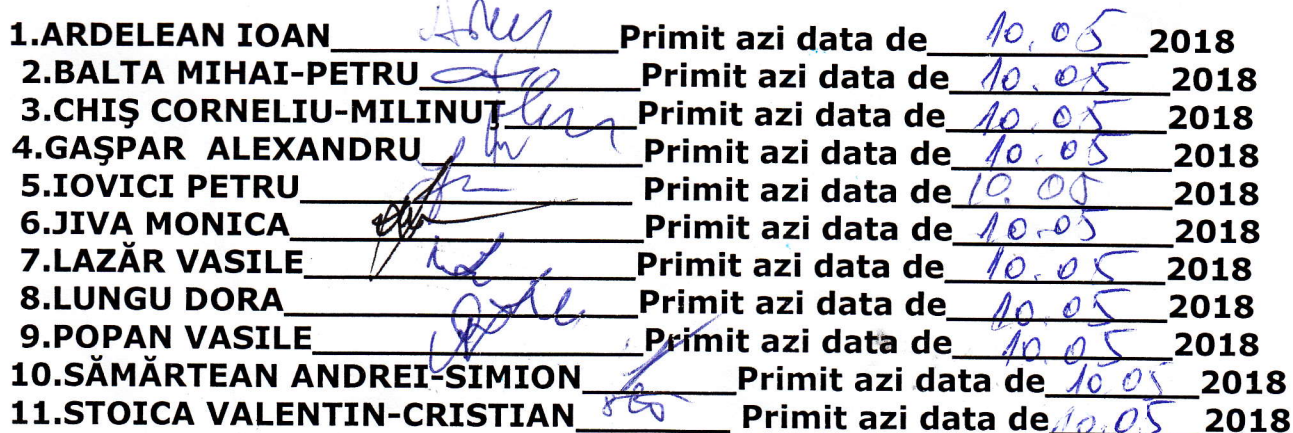 1.ARDELEAN IOAN Primit azi data de 10.05 2018
2.BALTA MIHAI-PETRU Primit azi data de 10.05 2018
3.CHIŞ CORNELIU-MILINUŢ Primit azi data de 10.05 2018
4.GAŞPAR ALEXANDRU Primit azi data de 10.05 2018
5.IOVICI PETRU Primit azi data de 10.05 2018
6.JIVA MONICA Primit azi data de 10.05 2018
7.LAZĂR VASILE Primit azi data de 10.05 2018
8.LUNGU DORA Primit azi data de 10.05 2018
9.POPAN VASILE Primit azi data de 10.05 2018
10.SĂMĂRTEAN ANDREI-SIMION Primit azi data de 10 05 2018
11.STOICA VALENTIN-CRISTIAN Primit azi data de 10.05 2018